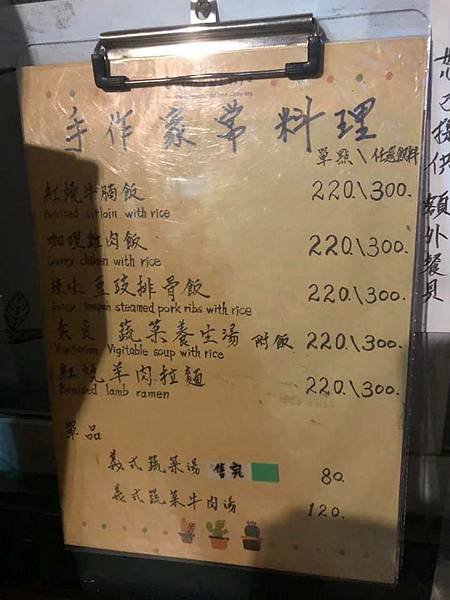 手作家常料理
單點\任選飲料
紅燒牛腩飯 220.\300.
Braised sirloin with rice
咖哩雞肉飯 220.\300.
Curry chiken with rice
辣味豆豉排骨飯 220.\300.
steamed pork ribs with rice
素食 蔬菜養生湯 附飯 220.\300.
Vigitable soup with rice
紅燒羊肉拉麵 220.\300.
Braised lamb ramen
單品
義式蔬菜湯 售完 80.
義式蔬菜牛肉湯 120.
提供額外餐具